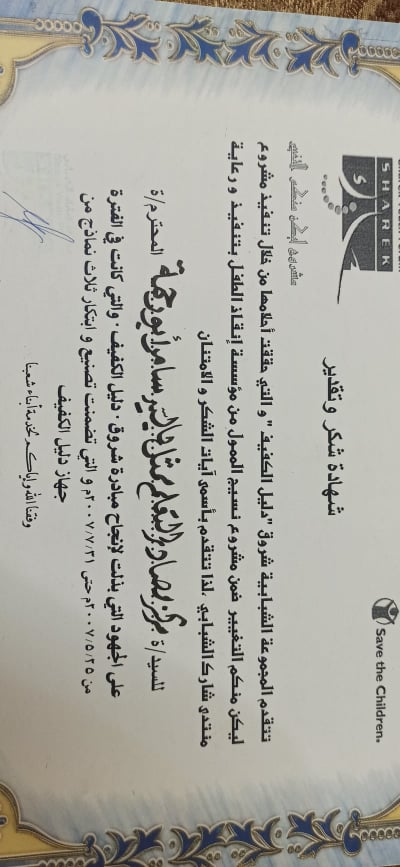 SHAREK
شارك
Save the Children.
شهادة شكر وتقدير
تتقدم المجموعة الشبابية شروق "دليل الكفيف" و التي حققت أحلامها من خلال تنفيذ مشروع
ليكن منكم التغيير ضمن مشروع نسيج الممول من مؤسسة إنقاذ الطفل بتنفيذ ورعاية
منتدى شارك الشبابي .لذا نتقدم بأسمى آيات الشكر والامتنان
للسيد/ة مركز مصادر التعلم ممثل بالسيد سامر أبو رحمة المحترم/ة
على الجهود التي بذلت لإنجاح مبادرة شروق . دليل الكفيف . والتي كانت في الفترة
من ٢٠٠٧/٥/٢٥م حتى ٢٠٠٧/٧/٣١م و التي تضمنت تصنيع و ابتكار ثلاث نماذج من
جهاز دليل الكفيف
وفقنا الله وإياكم لخدمة أبناء شعبنا